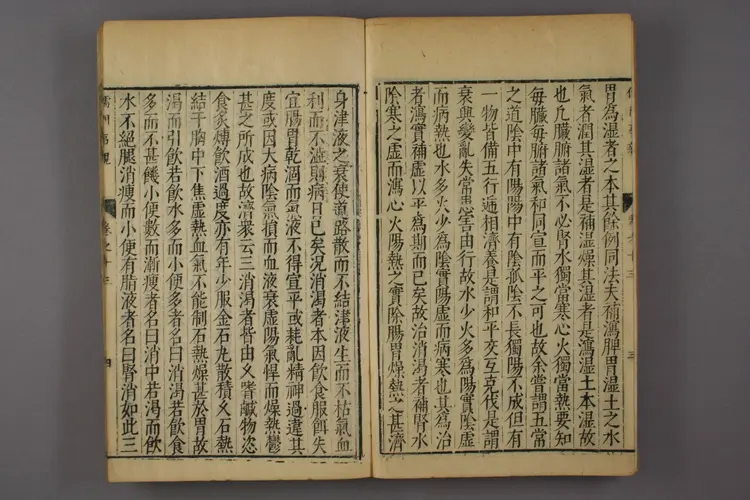 胃為湿者之本其餘例同法夫補瀉脾胃湿土之水
氣者潤其湿者是補湿燥其湿者是瀉湿土本湿故
也凡臓腑諸氣不必腎水獨當寒心火獨當熱要知
毎臓毎腑諸氣和同宣而平之可也故余嘗謂五常
之道陰中有陽陽中有陰孤陰不長獨陽不成但有
一物皆備五行逓相濟養是謂和平交互克伐是謂
衰興變亂失常患害由行故水少火多為陽實陰虚
而病熱也水多火少為陰實陽虚而病寒也其為治
者瀉實補虚以平為期而已矣故治消渴者補腎水
陰寒之虚而瀉心火陽熱之實除腸胃燥熱之甚濟
卷之十三
三
身津液之衰使道路散而不結津液生而不枯氣血
利而不澁則病日已矣况消渴者本因飲食服餌失
宜腸胃乾涸而氣液不得宣平或耗亂精神過違其
度或因大病陰氣損而血液衰虚陽氣悍而燥熱鬱
甚之所成也故濟衆云三消渴者皆由乆嗜鹹物恣
食炙煿飲酒過度亦有年少服金石丸散積乆石熱
結于胸中下焦虚熱血氣不能制石熱燥甚於胃故
渴而引飲若飲水多而小便多者名曰消渴若飲食
多而不甚饑小便數而漸瘦者名曰消中若渴而飲
水不絕腿消瘦而小便有脂液者名曰腎消如此三
卷之十三
四